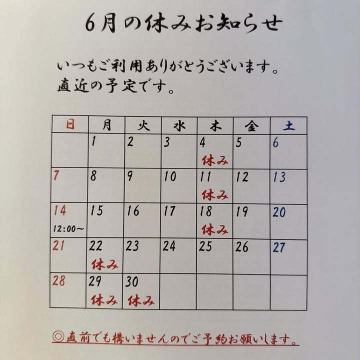 6月の休みお知らせ
いつもご利用ありがとうございます。
直近の予定です。
日 月 火 水 木 金 土
1 2 3 4 5 6
休み
7 8 9 10 11 12 13
休み
14 15 16 17 18 19 20
12:00～ 休み
21 22 23 24 25 26 27
休み
28 29 30
休み 休み
◎直前でも構いませんのでご予約お願いします。